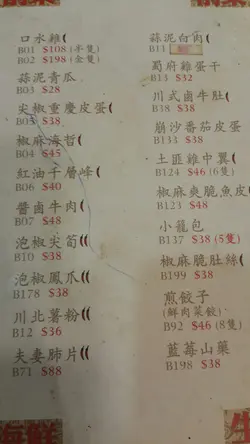 口水雞(
B01 $108 (半隻)
B02 $198 (全隻)
蒜泥青瓜
B03 $28
尖椒重慶皮蛋
B05 $38
椒麻海哲(
B04 $45
紅油千層峰(
B06 $40
醬鹵牛肉(
B07 $48
泡椒尖筍((
B10 $38
泡椒鳳爪((
B178 $38
川北薯粉((
B12 $36
夫妻肺片((
B71 $88
蒜泥白肉(
B11
蜀府雞蛋干
B13 $32
川式鹵牛肚(
B138 $38
崩沙番茄皮蛋
B133 $38
土匪雞中翼(
B124 $46 (6隻)
椒麻爽脆魚皮(
B123 $48
小籠包
B137 $38 (5隻)
椒麻脆肚絲(
B199 $38
煎餃子
(鮮肉菜餃)
B92 $46 (8隻)
藍莓山藥
B198 $38